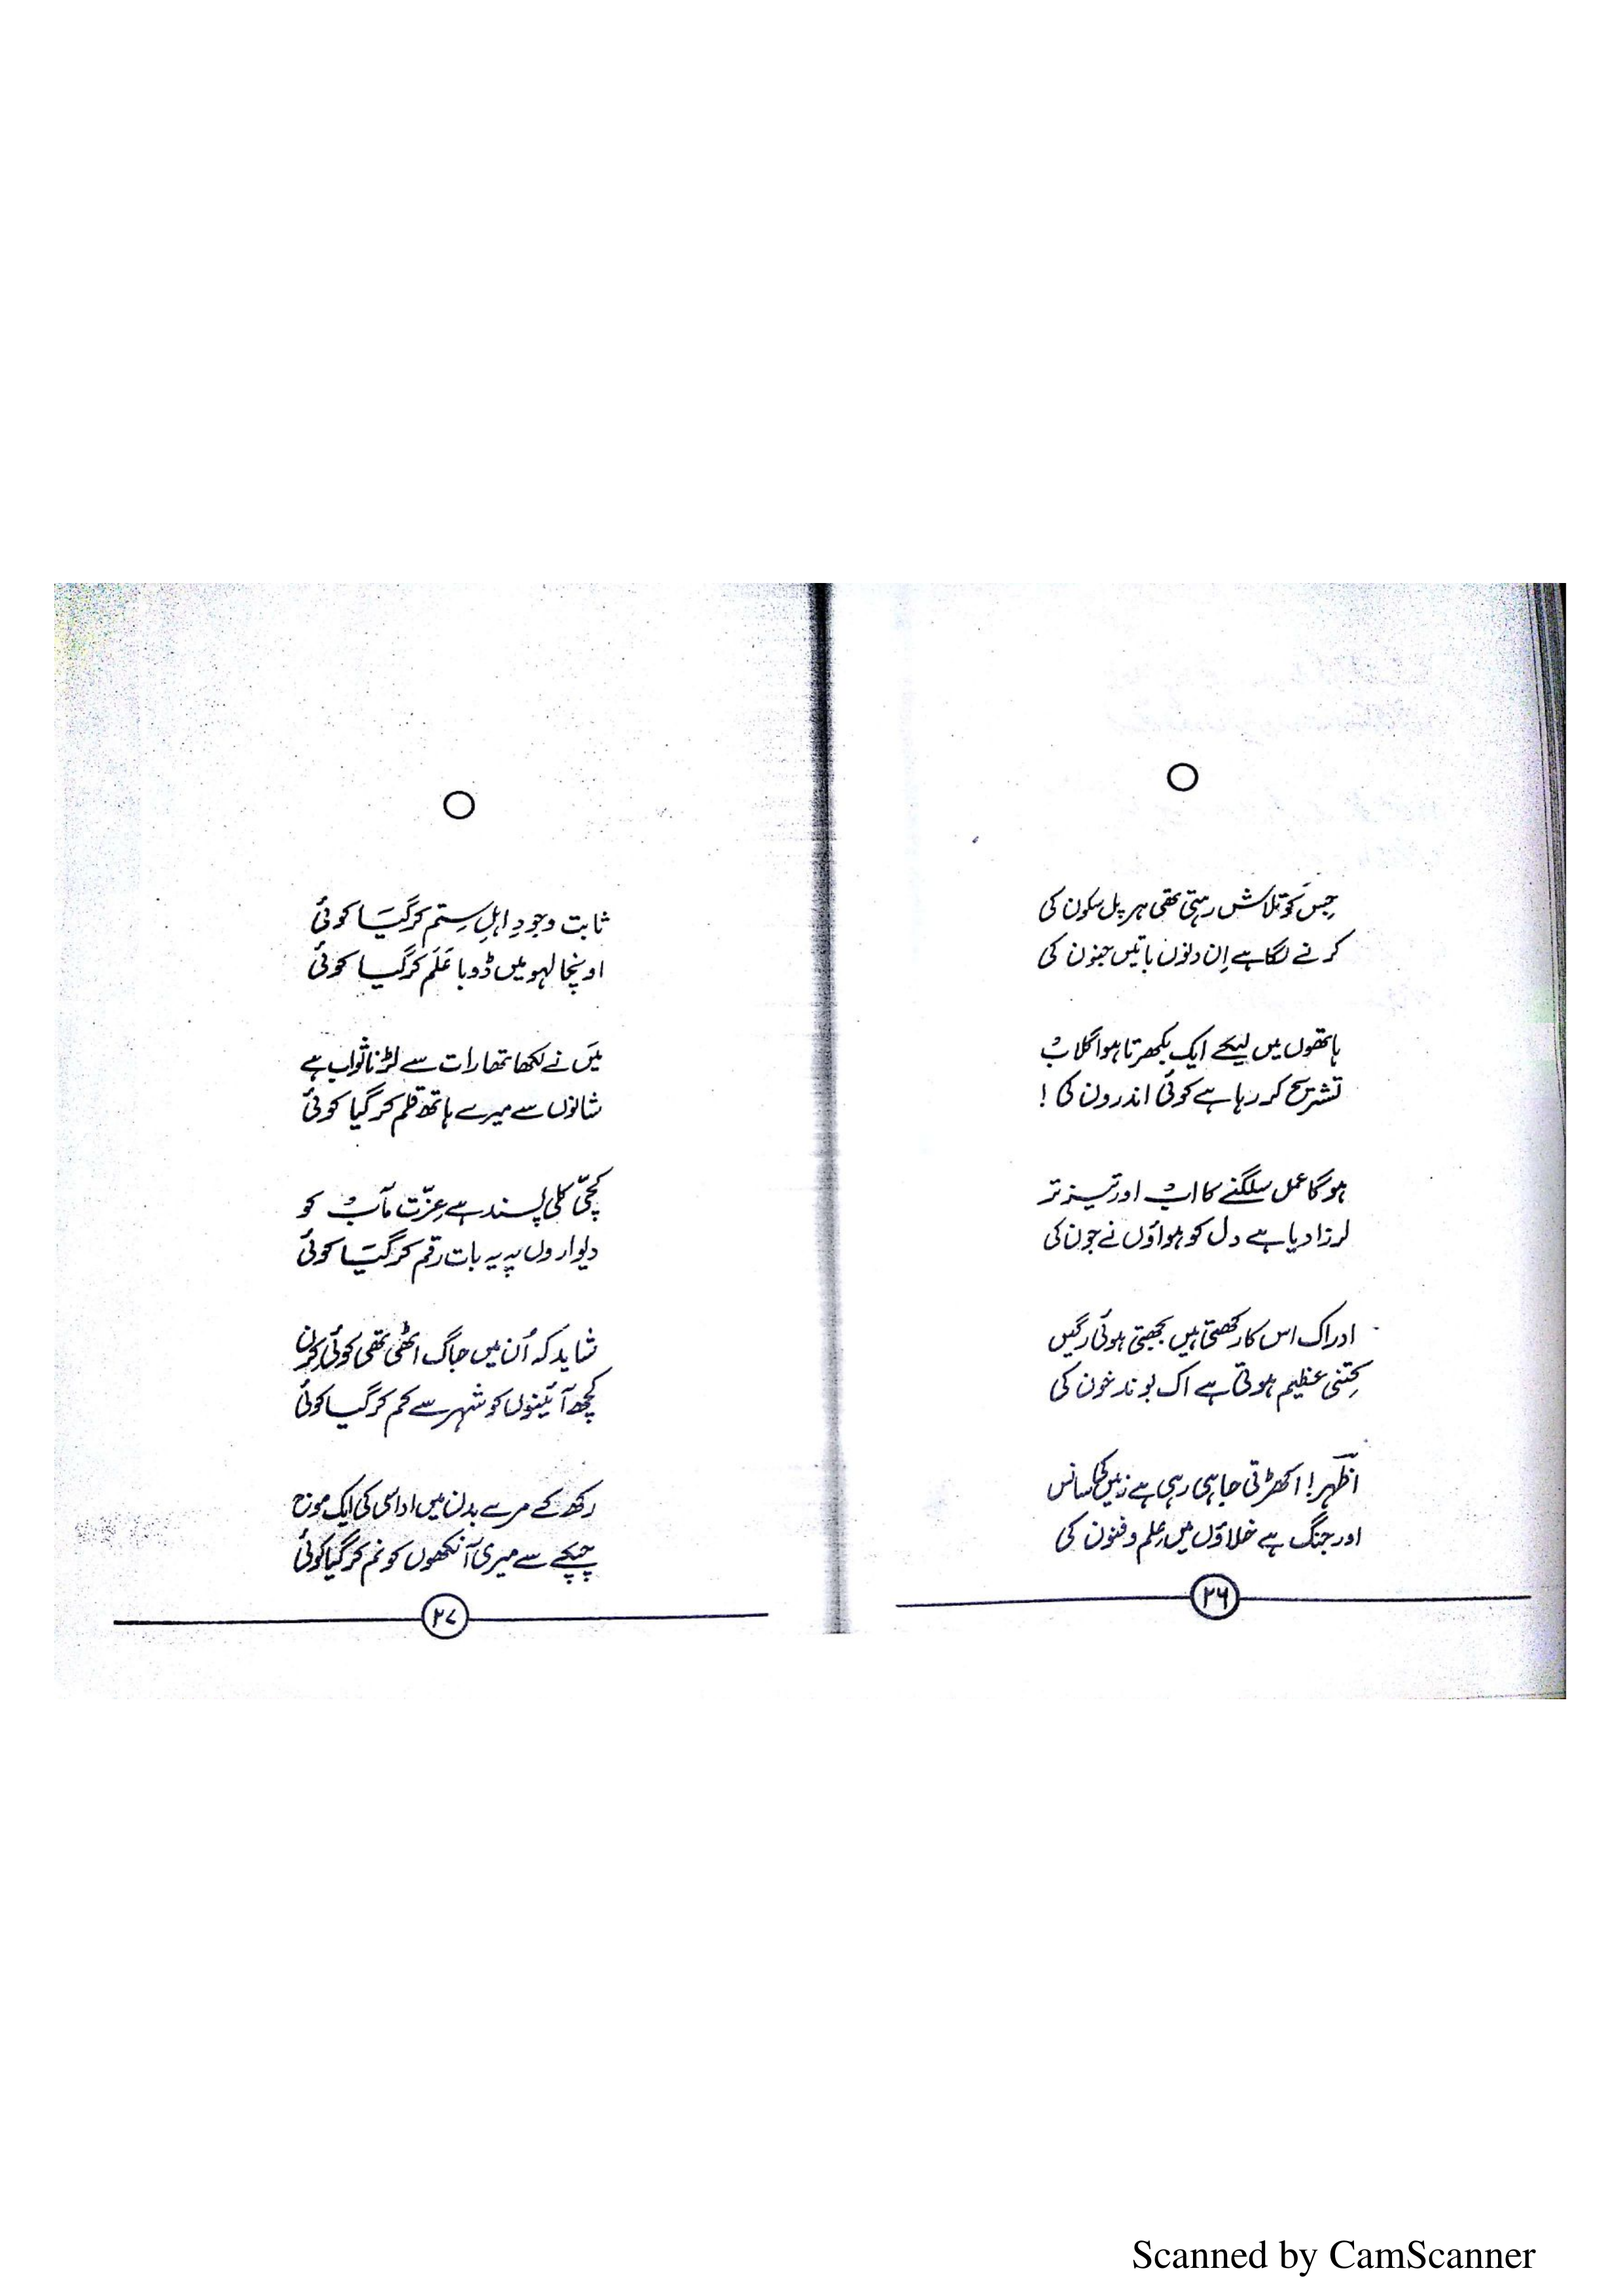 جس کو تلاش رہتی تھی ہر پل سکون کی
کرنے لگا ہے اِن دنوں باتیں جنون کی
ہاتھوں میں لیکے ایک بکھرتا ہوا گلاب
تشریح کر رہا ہے کوئی اندرون کی !
ہوگا عمل سلگنے کا اب اور تیز تر
لرزا دیا ہے دل کو ہواؤں نے جون کی
ادراک اس کا رکھتی ہیں بجھتی ہوئی رگیں
کتنی عظیم ہوتی ہے اک بوند خون کی
اظہر! اکھڑتی جا ہی رہی ہے زمیں کی سانس
اور جنگ ہے خلاؤں میں علم و فنون کی
۲۶
ثابت وجودِ اہلِ ستم کر گیا کوئی
اونچا لہو میں ڈوبا عَلَم کر گیا کوئی
میں نے لکھا تھا رات سے لڑنا ثواب ہے
شانوں سے میرے ہاتھ قلم کر گیا کوئی
کچّی کلی پسند ہے عزّت مآب کو
دیواروں پہ یہ بات رقم کر گیا کوئی
شاید کہ اُن میں جاگ اٹھی تھی کوئی کرن
کچھ آئینوں کو شہر سے کم کر گیا کوئی
رکھ کے مرے بدن میں اداسی کی ایک موج
چپکے سے میری آنکھوں کو نم کر گیا کوئی
۲۷
Scanned by CamScanner